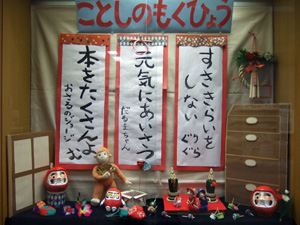 ことしのもくひょう
すききらいを
しない
ぐりぐら
元気にあいさつ
だるまちゃん
本をたくさんよむ
おさるのジョージ